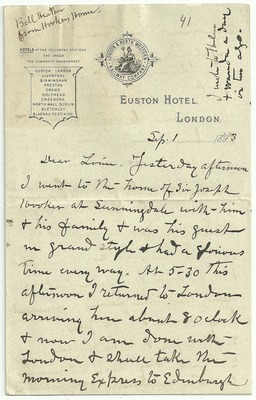 Bell Heather
from Hookers Home.
41
HOTELS AT THE FOLLOWING STATIONS
ARE UNDER
THE COMPANY'S MANAGEMENT
EUSTON LONDON
LIVERPOOL
BIRMINGHAM
PRESTON
CREWE
HOLYHEAD
GREENORE
NORTH WALL DUBLIN
BLETCHLEY
BLAENAU FESTINIOG
LONDON & NORTH WESTERN
RAILWAY COMPANY
I write to Helen
& Wanda a day
or two ago.
EUSTON HOTEL,
LONDON.
Sep. 1 1893
Dear Louie. Yesterday afternoon
I went to the home of Sir Joseph
Hooker at Sunningdale with him
& his family & was his guest
in grand style & had a glorious
time every way. At 5-30 this
afternoon I returned to London
arriving here about 8 Oclock
& now I am done with
London & shall take the
morning Express to Edinburgh